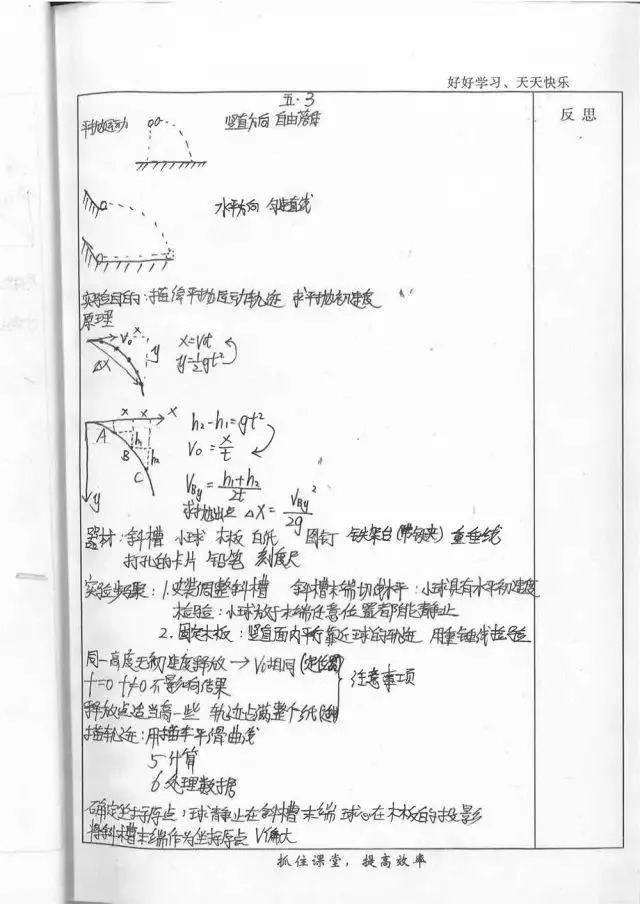 好好学习、天天快乐
五·3
反思
平抛运动 竖直方向 自由落体
水平方向 匀速直线
实验目的:描绘平抛运动轨迹 求平抛初速度
原理
V₀ x y Δx
x=Vt
y=½gt²
x x X
A h₁ B h₂ C y
h₂-h₁=gt²
V₀=x/t
V_By=(h₁+h₂)/2t
求抛出点 Δx=V_By²/2g
器材:斜槽 小球 木板 白纸 图钉 铁架台(带铁夹) 重垂线
打孔的卡片 铅笔 刻度尺
实验步骤:1.安装调整斜槽 斜槽末端切线水平:小球具有水平初速度
检验:小球放于末端任意位置都能静止
2.固定木板:竖直面内平行靠近球的轨迹 用重锤线检验
同一高度无初速度释放→V₀相同(定位器)
f=0 f≠0不影响结果
注意事项
释放点适当高一些 轨迹占满整个纸
描轨迹:用描平滑曲线
5 计算
6 处理数据
确定坐标原点:球静止在斜槽末端 球心在木板的投影
将斜槽末端作为坐标原点 V偏大
抓住课堂，提高效率